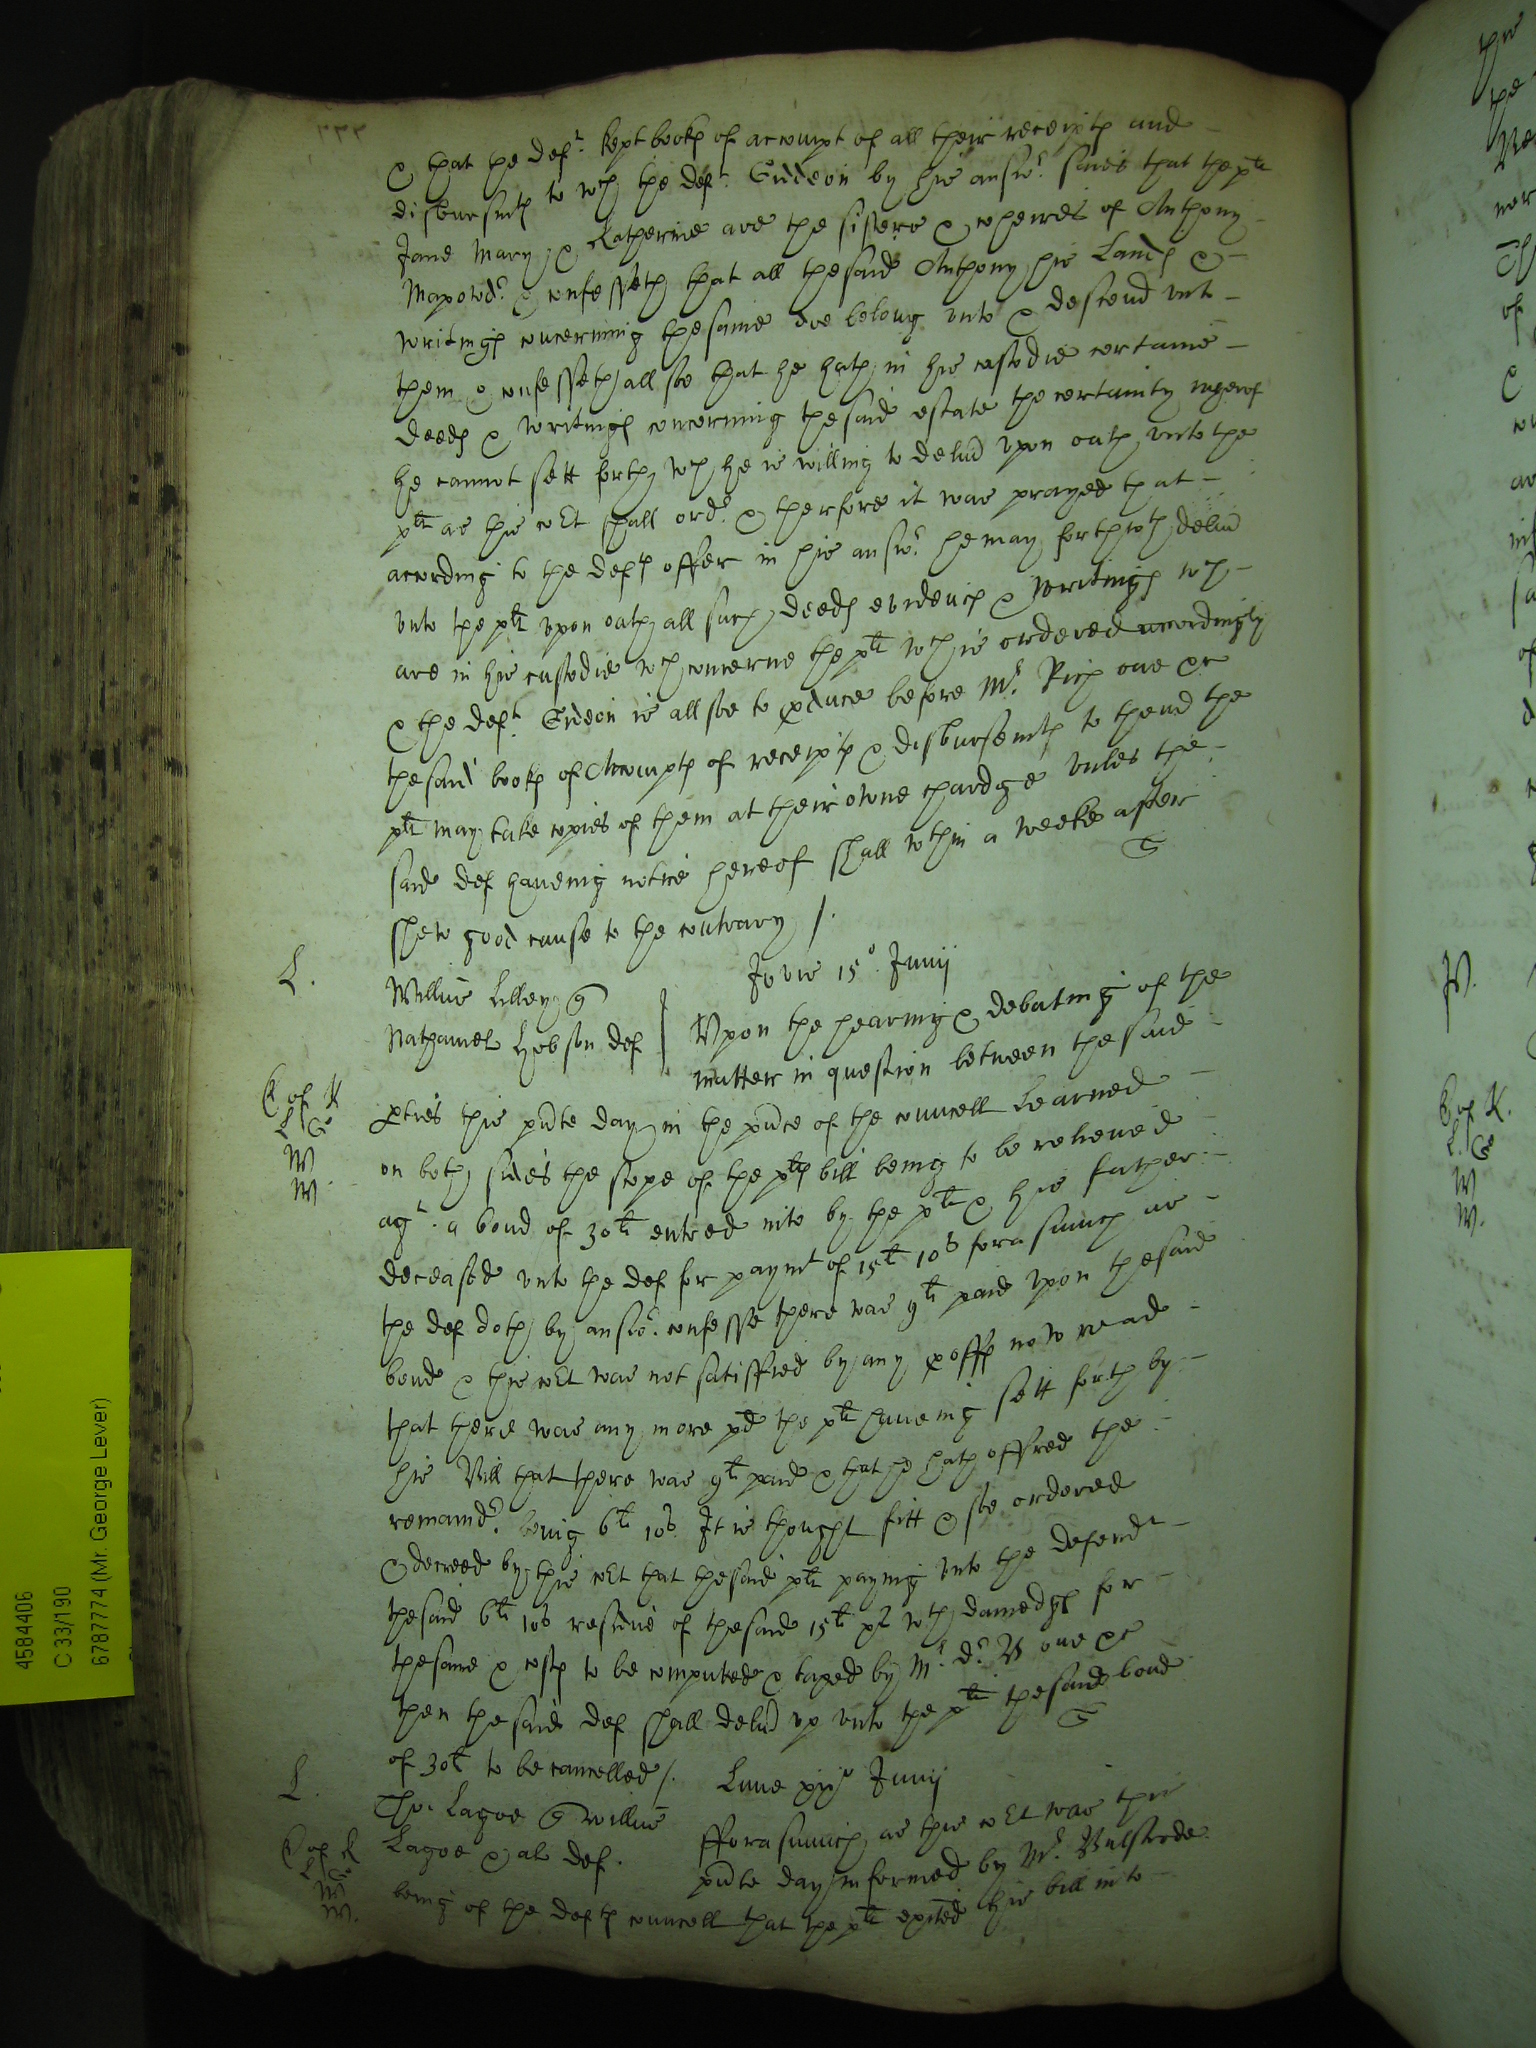 & that the def.t kept book℮ of accompt of all their receipt℮ and
disbursm.t℮ to w.ch the def.t Gideon by his answ.r saies that the pl.t
Jane Mary & Katherine are the sisters & coheires of Anthony
Mapowd.r & confesseth that all the said Anthony his Land℮ &
writing℮ concerning the same doe belong unto & descend unt
them & confesseth allsoe that he hath in his custodie certaine
deed℮ & writing℮ concerning the said estate the certainty whereof
he cannot sett forth w.ch he is willing to deliv.r upon oath unto the
pl.t as this co.rt shall ord.r & therfore it was prayed that
according to the def.t℮ offer in his answ.r he may forthw.th deliv.r
unto the pl.t upon oath all such deed℮ evidenc℮ & writing℮ w.ch
are in his custodie w.ch concerne the pl.t w.ch is ordered accordingly
& the def.t Gideon is allsoe to pduce before M.r Rich one &c
the said book℮ of Accompt℮ of receipt℮ & disbursem.t℮ to thend the
pl.t may take copies of them at their owne chardge unles the
said def haveing notice hereof shall w.thin a weeke after
shew good cause to the contrary /.
L. Jovis 15.o Junij
Willm̃ Lilley q
Nathaniel Hobson def Upon the hearing & debating of the
matter in question between the said
pties this pñte day in the pñce of the councell Learned
on both sides the scope of the pl.t℮ bill being to be releived
ag.t a bond of 30.li entred into by the pl.t & his father
deceased unto the def for paym.t of 15.li 10.s forasmuch as
the def doth by answ.r confesse there was 9.li paid upon the said
bond & this co.rt was not satisfied by any proff℮ now read
that there was any more p.d the pl.t haveing sett forth by
his Bill that there was 9.li paid & that he hath offred the
remaind.r being 6.li 10.s It is thought fitt & soe ordered
& decreed by this co.rt that the said pl.t paying unto the defend.t
the said 6.li 10.s residue of the said 15.li 10.s w.th damedg℮ for
the same & cost℮ to be computed & taxed by M.r d.r one &c
then the said def shall deliv.r up unto the pl.t the said bond
of 30.li to be cancelled /.
L. Lune xij.o Junij
Tho. Lagoe q Willm̃
Lagoe & al def. fforasmuch as this co.rt was this
pñte day informed by M.r Bulstrode
being of the def.t℮ councell that the pl.t exited his bill into
4584406
C 33/190
6787774 (Mr. George Lever)